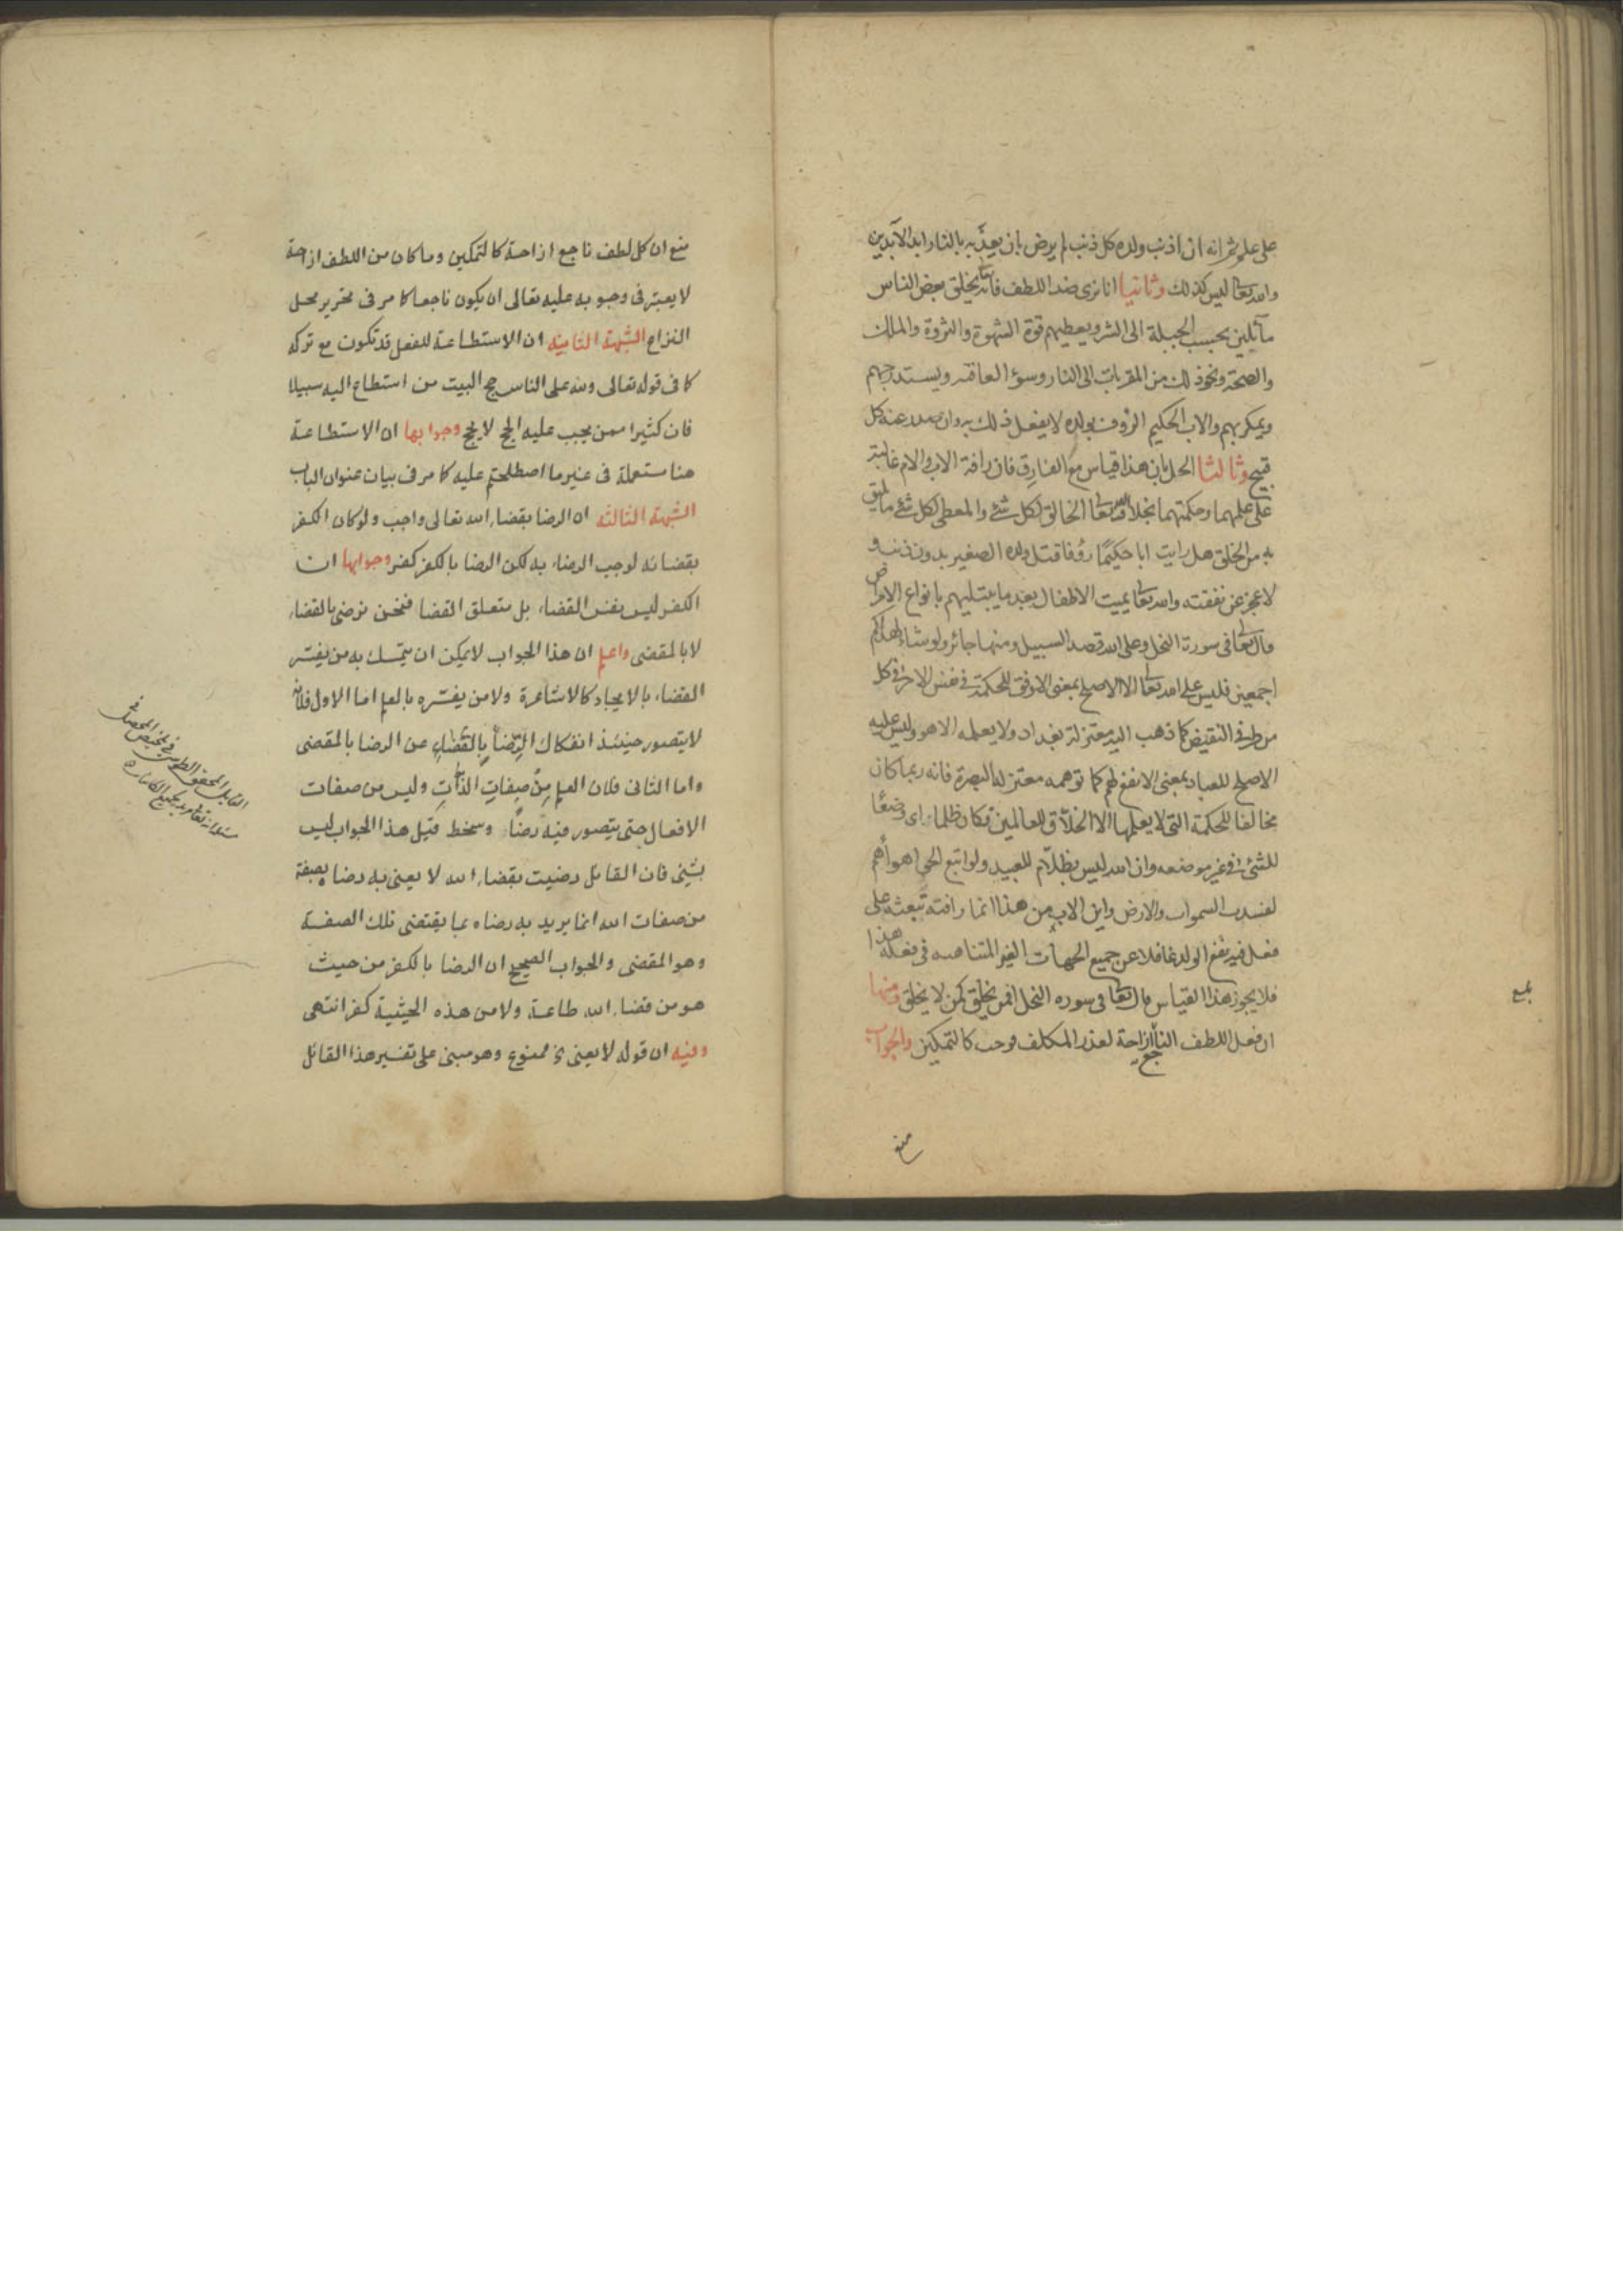 على علم شرانه ان اذنب ولده كل ذنب لم يرض بان يعذّبه بالنار ابد الآبدين
والله تعا ليس كذلك وثانيا انا نرى ضد اللطف فانه تعا يخلق بعض الناس
مآئلين بحسب الجبلة الى الشر ويعطيهم قوة الشهوة والثروة والملك
والصحة ونحو ذلك من المقربات الى النار وسوء العاقبه ويستدرجهم
ويمكر بهم والاب الحكيم الرؤف بولده لا يفعل ذلك به وان صدر عنه كل
قبيح وثالثا الحل بان هذا قياس مع الفارق فان رافة الاب والام غالبة
على علمهما وحكمتهما بخلاف الله تعا الخالق لكل شئ والمعطى لكل شئ ما يليق
به من الخلق هل رايت ابا حكيمًا رؤفا قتل ولده الصغير بدون ذنب و
لا عجز عن نفقته والله تعا يميت الاطفال بعد ما يبتليهم بانواع الامراض
قال تعا فى سورة النحل وعلى الله قصد السبيل ومنها جائر ولو شاء لهداكم
اجمعين فليس على الله تعا الا الاصلح بمعنى الاوفق للحكمة فى نفس الامر فى كل
من طرفى النقيض كما ذهب اليه معتزلة بغداد ولا يعلمه الا هو وليس عليه
الاصلح للعباد بمعنى الانفع لهم كما توهمه معتزلة البصرة فانه ربما كان
مخالفا للحكمة التى لا يعلمها الا الخلاّق للعالمين فكان ظلما اى وضعًا
للشئ فى غير موضعه وان الله ليس بظلاّم للعبيد ولو اتبع الحق اهواءهم
لفسدت السموات والارض واين الاب من هذا انما رافته تبعثه على
فعل فيه نفع الولد غافلا عن جميع الجهات الغير المتناهيه فى فعله هذا
فلا يجوز هذا القياس قال تعا فى سوره النحل افمن يخلق كمن لا يخلق ومنها
ان فعل اللطف الناجع ازاحة لعذر المكلف فوجب كالتمكين والجواب
منع
بلغ
منع ان كل لطف ناجع ازاحة كالتمكين وما كان من اللطف ازاحة
لا يعتبر فى وجوبه عليه تعالى ان يكون ناجعا كما مر فى تحرير محل
النزاع الشبهة الثانية ان الاستطاعة للفعل قد تكون مع تركه
كما فى قوله تعالى ولله على الناس حج البيت من استطاع اليه سبيلا
فان كثيرا ممن يجب عليه الحج لا يحج وجوابها ان الاستطاعة
هنا مستعملة فى غير ما اصطلحتم عليه كما مر فى بيان عنوان الباب
الشبهة الثالثة ان الرضا بقضاء الله تعالى واجب ولو كان الكفر
بقضائه لوجب الرضاء به لكن الرضا بالكفر كفر وجوابها ان
الكفر ليس نفس القضاء بل متعلق القضا فنحن نرضى بالقضاء
لا بالمقضى واعلم ان هذا الجواب لا يمكن ان يتمسك به من يفسّر
القضاء بالايجاد كالاشاعرة ولا من يفسّره بالعلم اما الاول فلانه
لا يتصور حينئذ انفكاك الرِّضا بِالقَضاءِ عن الرضا بالمقضى
واما الثانى فلان العلم مِنْ صِفاتِ الذّاتِ وليس من صفات
الافعال حتى يتصور فيه رضًا وسخط قيل هذا الجواب ليس
بشئ فان القائل رضيت بقضاء الله لا يعنى به رضا بصفة
من صفات الله انما يريد به رضاه بما يقتضى تلك الصفة
وهو المقضى والجواب الصحيح ان الرضا بالكفر من حيث
هو من قضاء الله طاعة ولا من هذه الحيثية كفر انتهى
وفيه ان قوله لا يعنى الخ ممنوع وهو مبنى على تفسير هذا القائل
القايل المحقق الطوسى فى تلخيص المحصل فى
مسئلة انه تعا مريد لجميع الكائنات